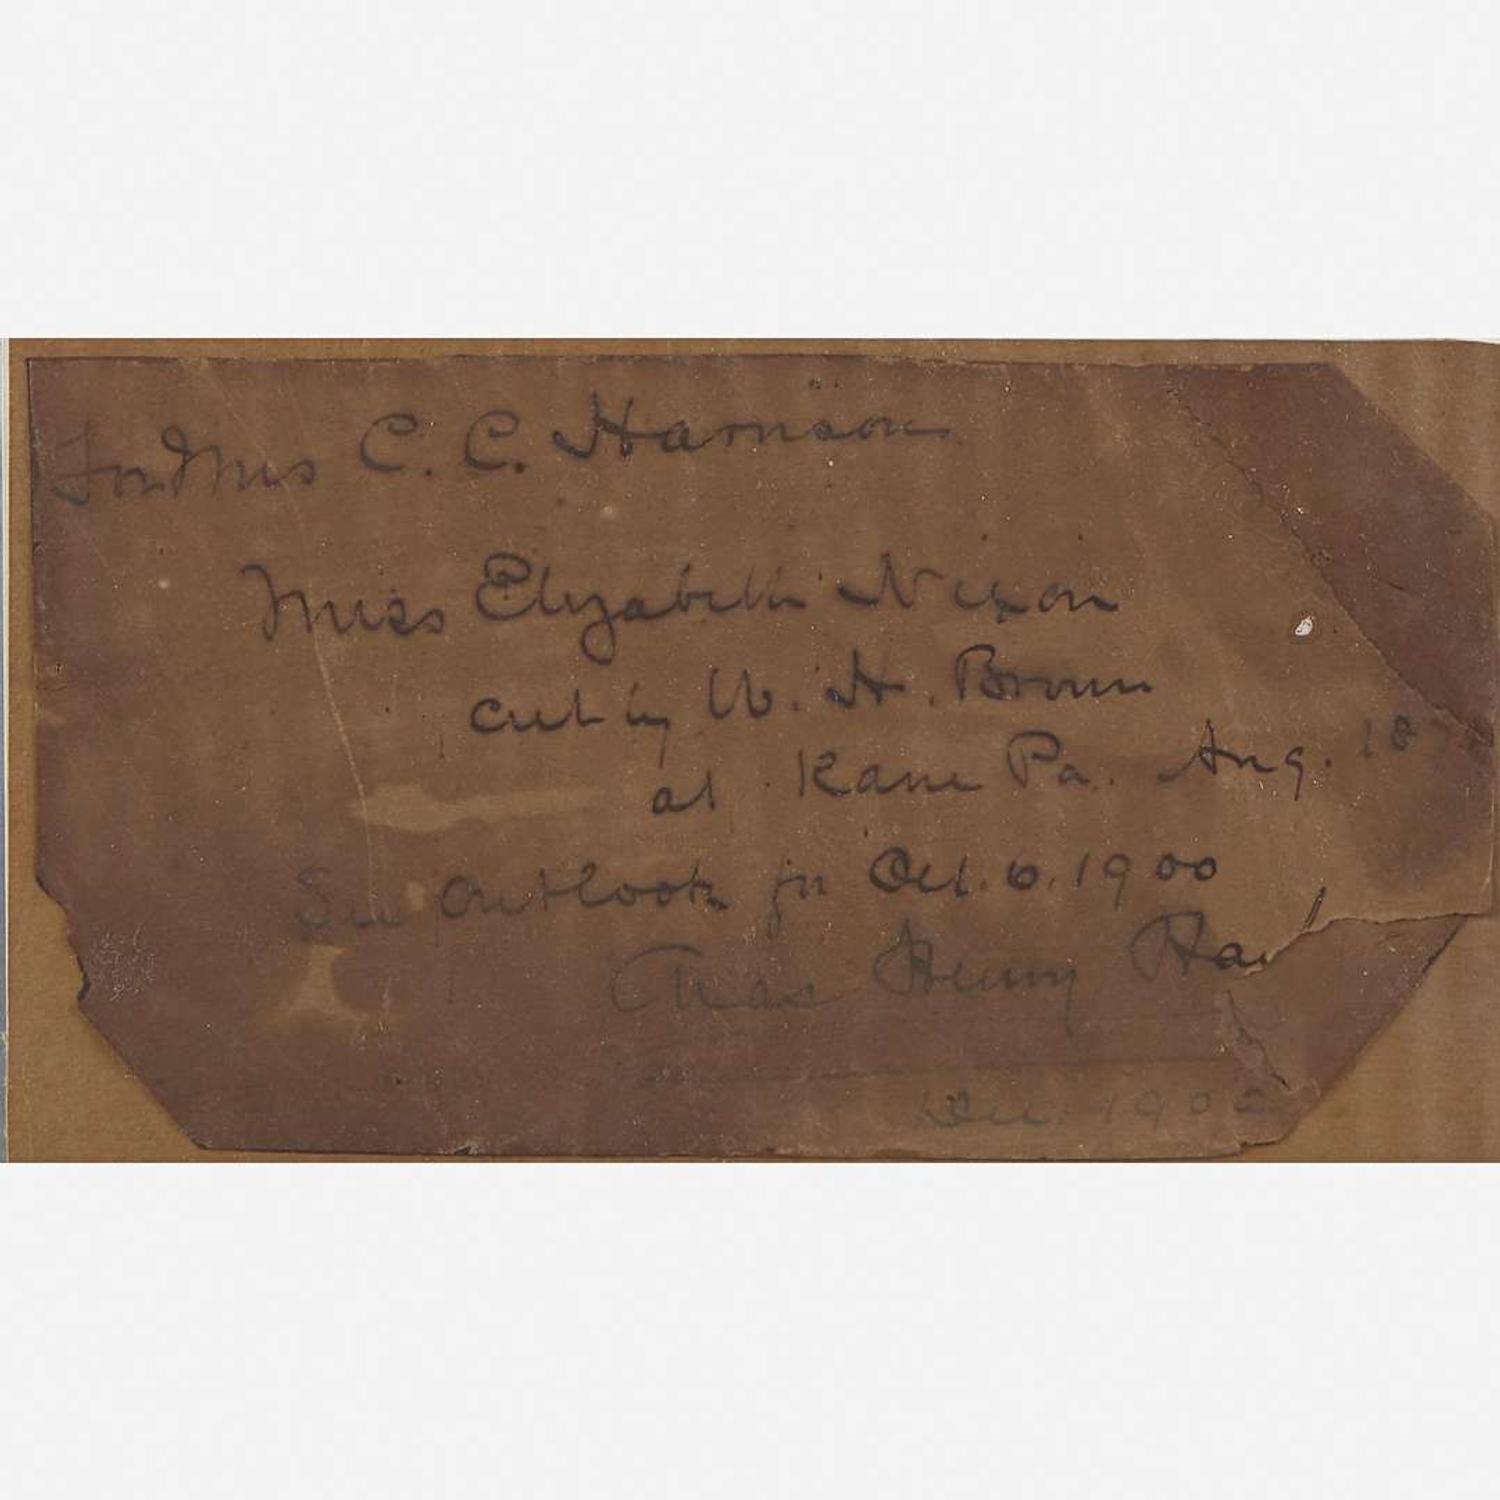 For Mrs C. C. Harrison
Miss Elizabeth Nixon
cut by W. H. Brown
at Kane Pa. Aug. 187
See Outlook for Oct. 6. 1900
Chas Henry Ha
Dec. 1902